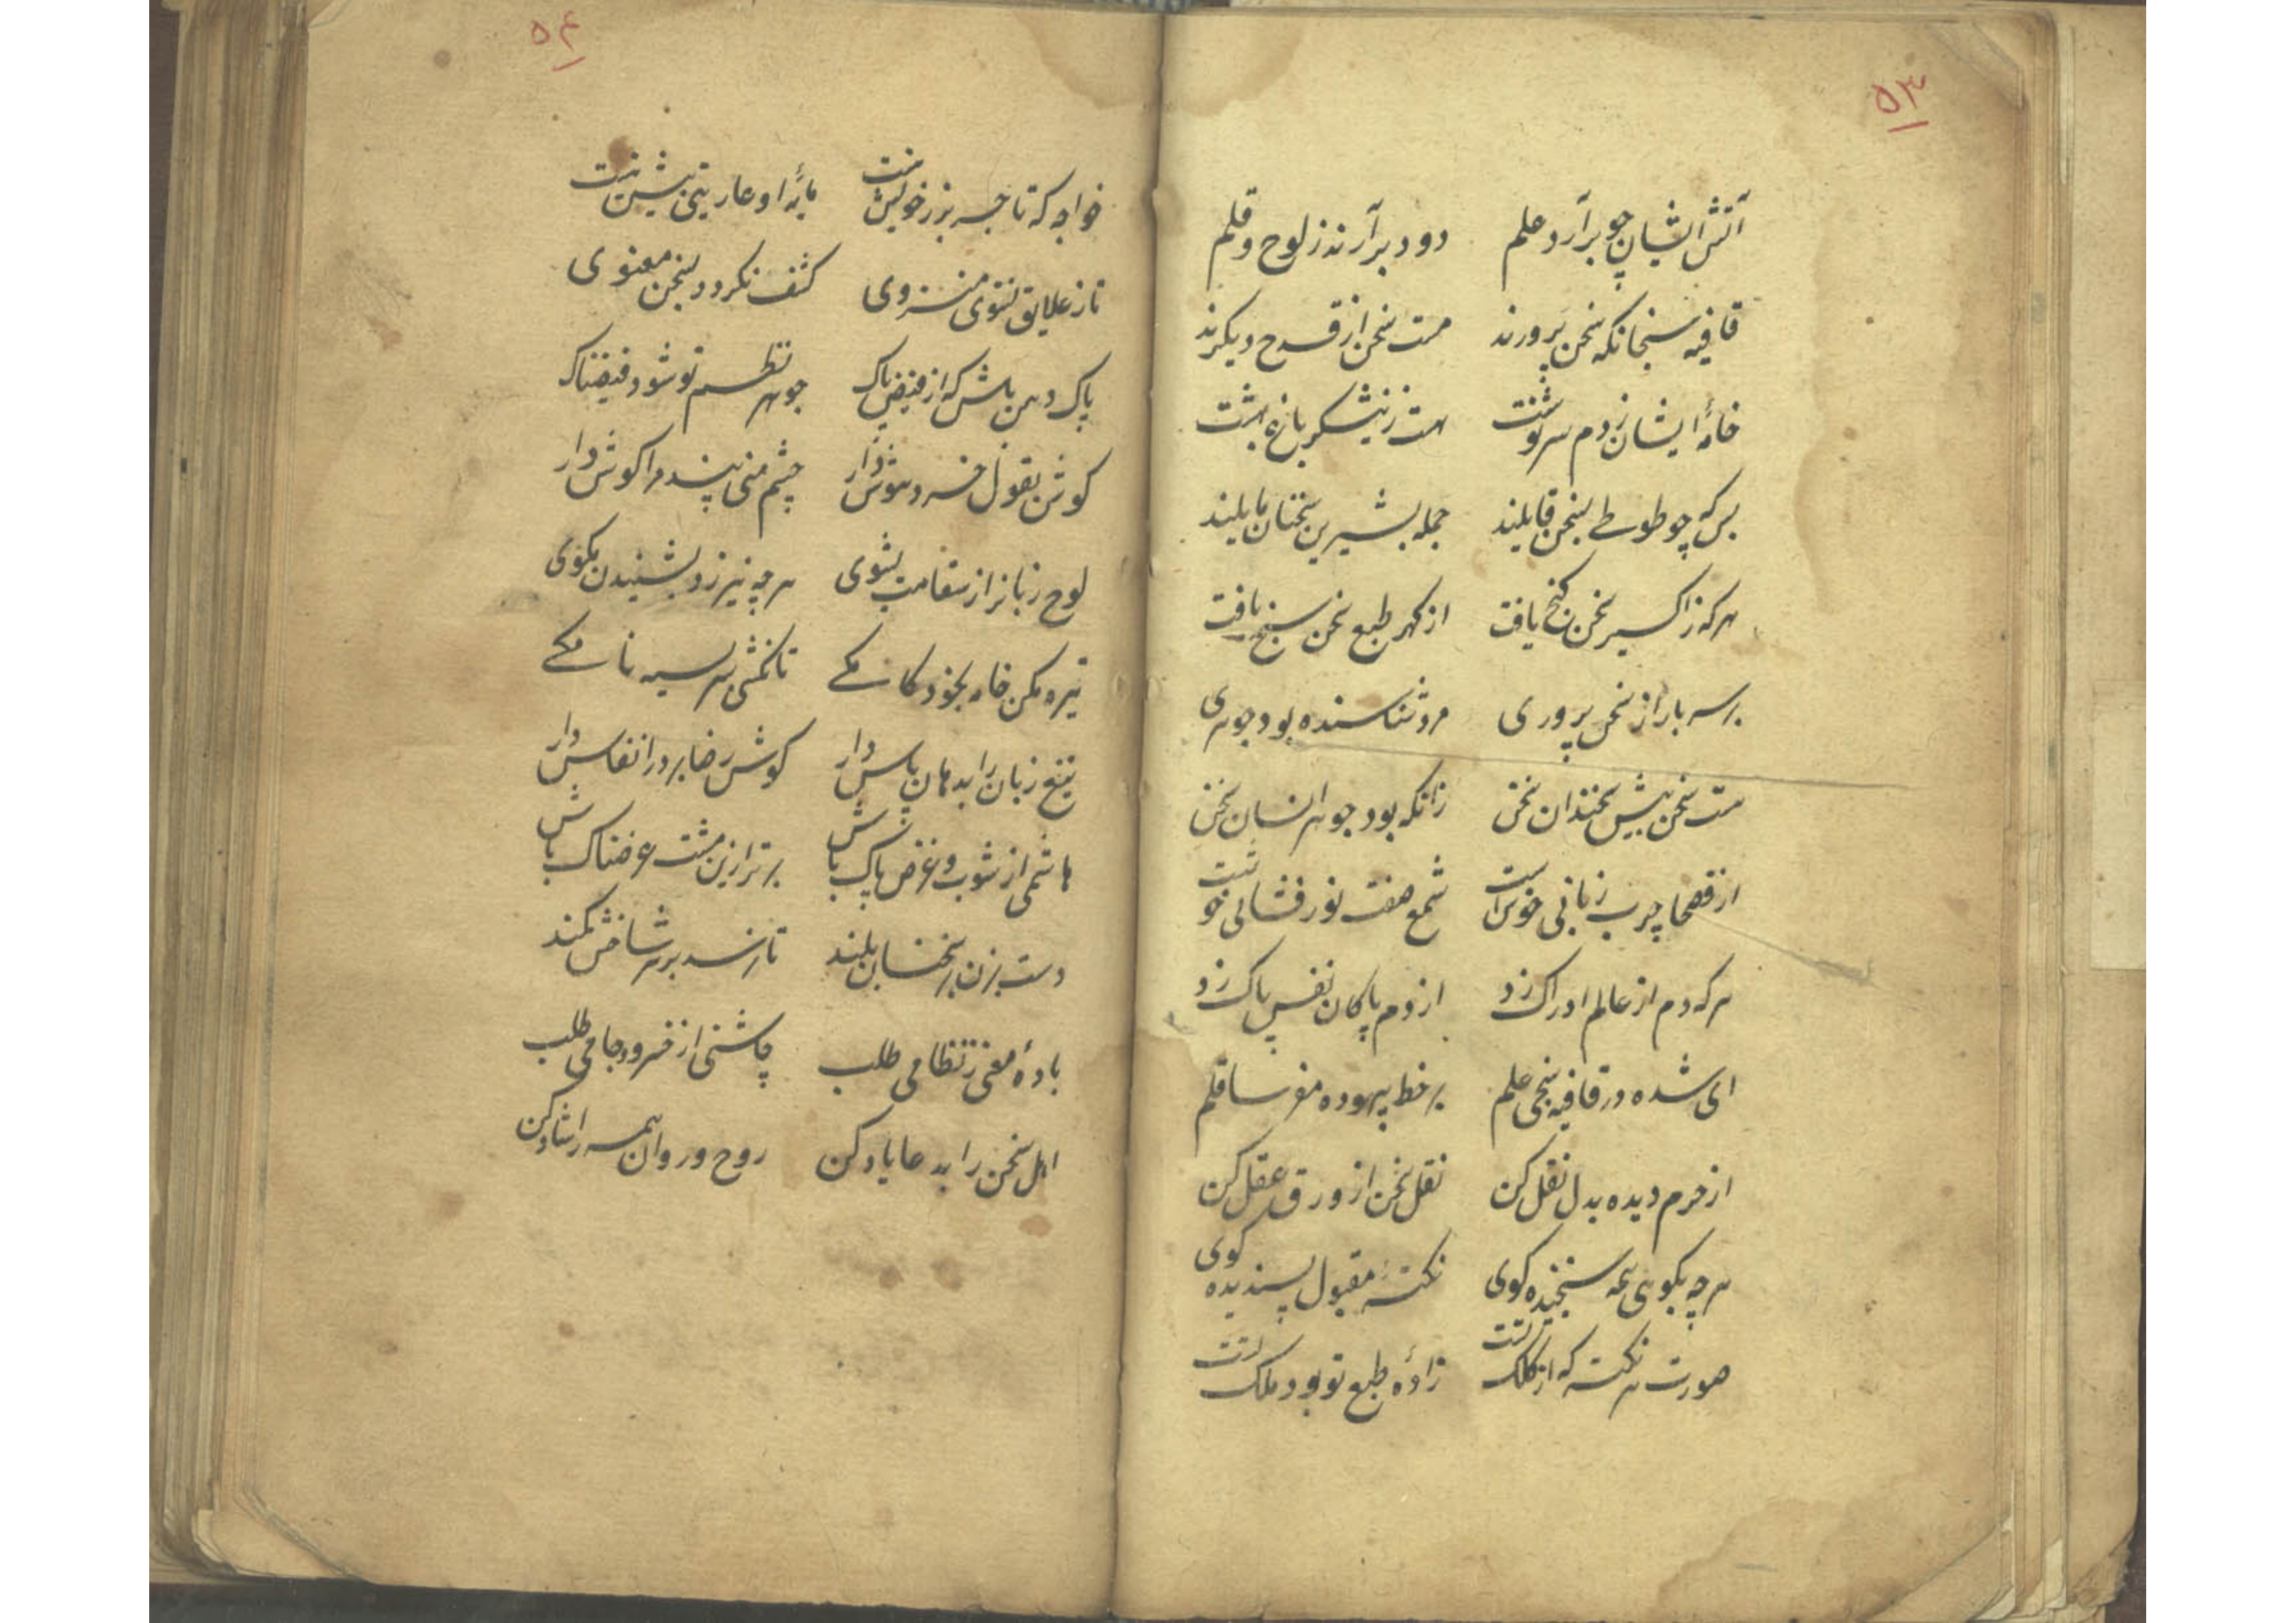 ۵۳
آتش ایشان چو برآرد علم دود برآرند ز لوح و قلم
قافیه سنجان که سخن پرورند مست سخن از قدح دیگرند
خامهٔ ایشان ز دم سرنوشت هست ز نیشکر باغ بهشت
بس که چو طوطے بسخن قایلند جمله بشیرین سخنان مایلند
هر که ز اکسیر سخن گنج یافت از گهر طبع سخن سنج یافت
بر سر بازار سخن پروری مرد شناسنده بود جوهری
هست سخن پیش سخندان سخن زانکه بود جوهر انسان سخن
از فصحا چرب زبانی خوش است شمع صفت نور فشانی خوشست
هر که دم از عالم ادراک زد از دم پاکان نفس پاک زد
ای شده در قافیه سنجی علم بر خط بیهوده مفرسا قلم
از حرم دیده بدل نقل کن نقل سخن از ورق عقل کن
هر چه بگوی همه سنجیده کوی نکتهٔ مقبول پسندیده کوی
صورت هر نکته که از کلک تست زادهٔ طبع تو بود ملک تست
۵۴
خواجه که تاجسر بزر خویش نیست مایهٔ او عاریتی بیش نیست
تا ز علایق نشوی منزوی کشف نکردد سخن معنوی
پاک دهن باش که از فیض پاک جوهر نظم تو شود فیضناک
کوش بقول خرد هوش دار چشم منی پند مرا کوش دار
لوح زبانرا ز سقامت بشوی هر چه نیرزد بشنیدن مکوی
تیره مکن خامه بخود کامکے تا نکشی سر بسیه نامکے
تیغ زبان را بدهان پاس دار کوش رضا بر در انفاس دار
هاشمی از شوب و غرض پاک باش برتر ازین مشت عرضناک باش
دست بزن بر سخنان بلند تا رسد بر سر شاخش کمند
بادهٔ معنی ز نظامی طلب چاشنی از خسرو و جامی طلب
اهل سخن را بدعا یاد کن روح و روان همه را شاد کن